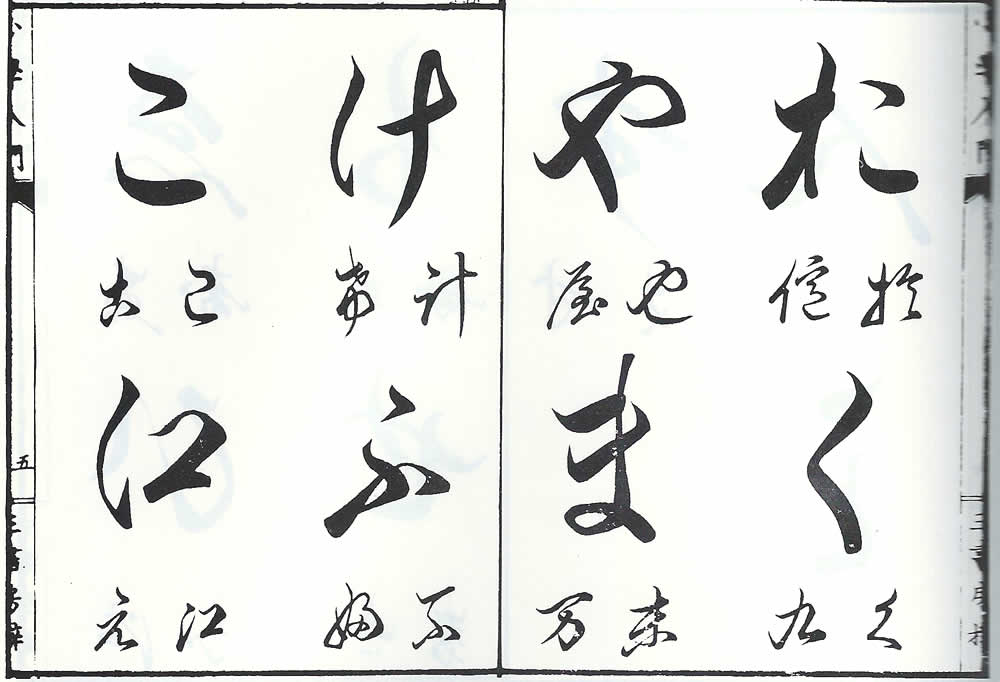 お
於
く
久 九
や
也 屋
ま
末 万
け
計 希
ふ
不 婦
こ
己 古
江
江 元
入門
五